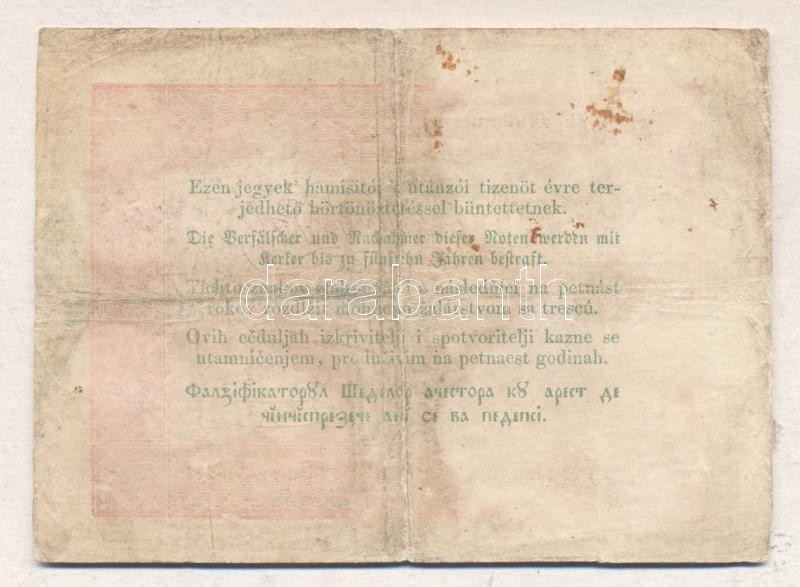 Ezen jegyek' hamisitói 's utánzói tizenöt évre ter-
jedhető börtönöztetéssel büntettetnek.
Die Verfälscher und Nachahmer dieser Noten werden mit
Kerker bis zu fünfzehn Jahren bestraft.
Tíchto následníci na petnást
rokov žalárstvom sa trescú.
Ovih ceduljah izkrivitelji i spotvoritelji kazne se
utamničenjem, produživim na petnaest godinah.
Фалзіфікаторꙋл Шеделор ачестора кꙋ арест де
чінчіспрезече ані се ва педепсі.
darabanth